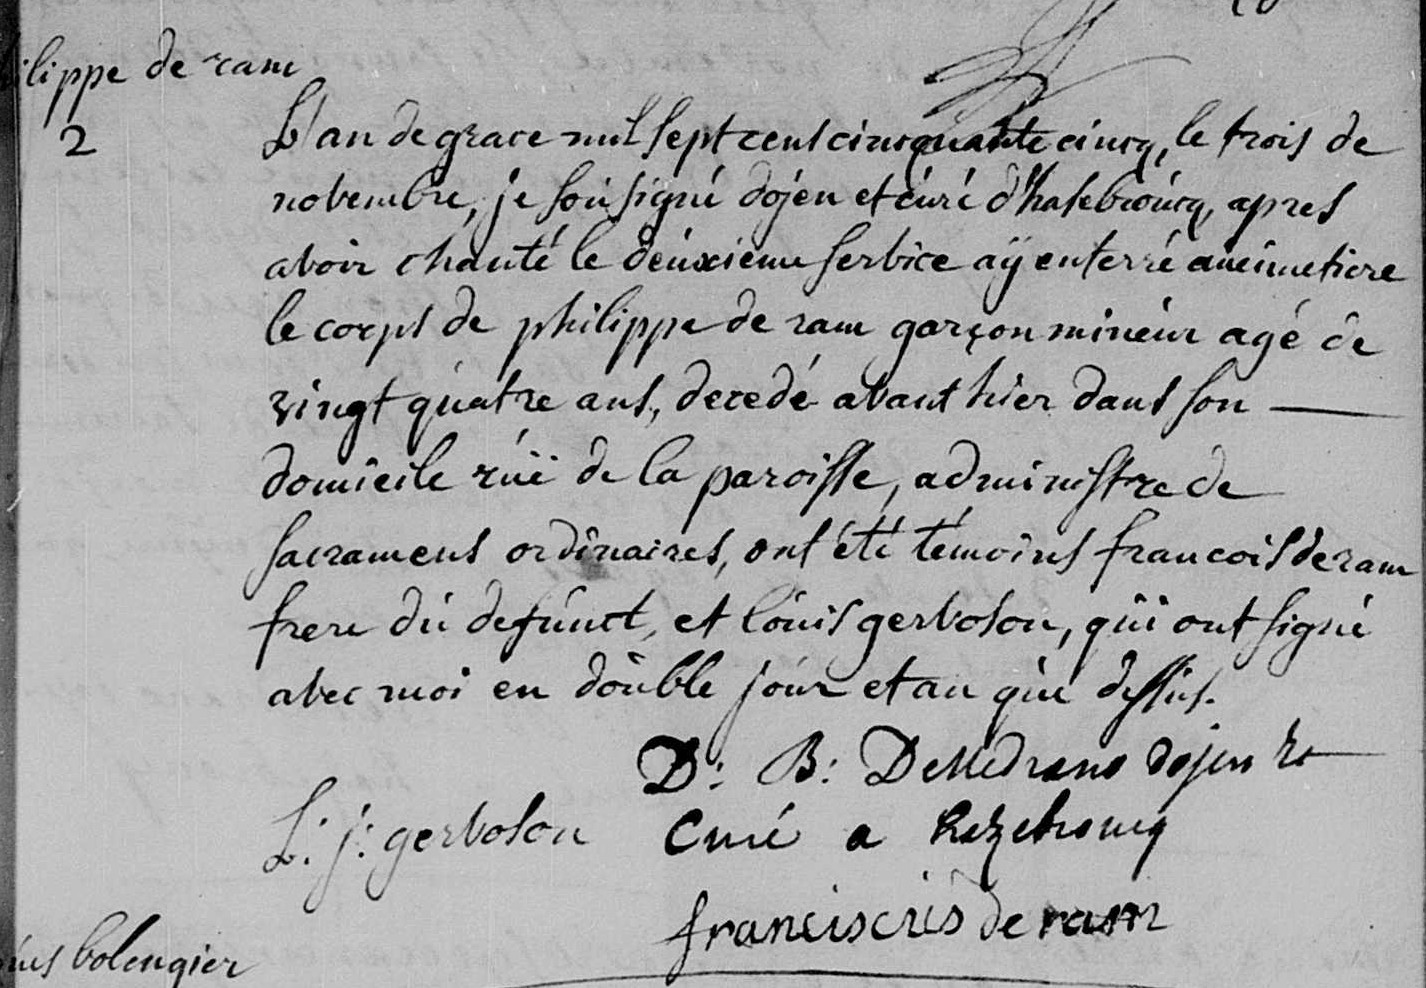 ilippe de ram
2
L'an de grace mil sept cens cincquante cincq, le trois de
novembre, je soûsigné dojen et cûré d'hasebroûcq, apres
avoir chanté le deûxieme service aÿ enterré au cimetiere
le corps de philippe de ram garçon mineûr agé de
vingt qûatre ans, decedé avant hier dans son
domicile rûë de la paroisse, administre de
sacramens ordinaires, ont été témoins francois de ram
frere dû defûnct, et loûis gervoson, qûi ont signé
avec moi en doûble joûr et an qûe dessûs.
D: B: DeMedrano dojen et
L: j: gervoson curé a Hazebroucq
franciscus de ram
bolengier